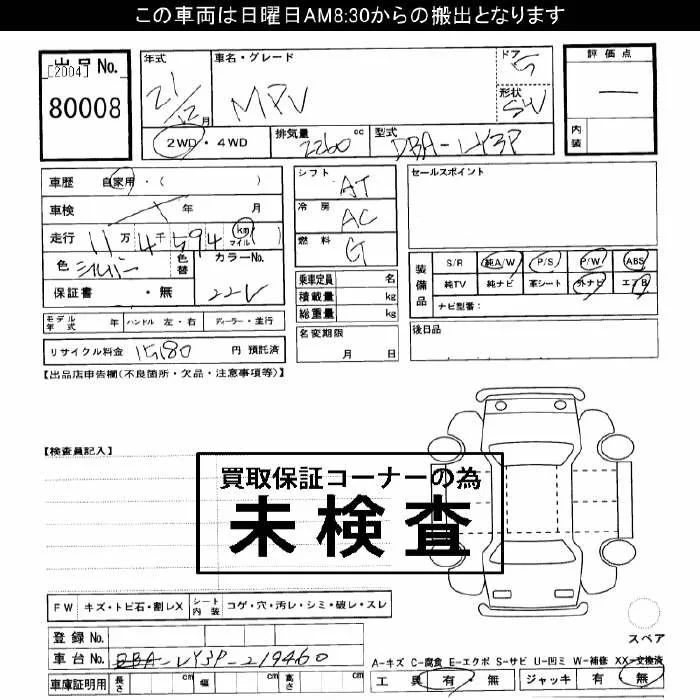 この車両は日曜日AM8:30からの搬出となります
出品No.
[2004]
80008
年式
21/12月
車名・グレード
MPV
ドア
5
形状
SW
評価点
—
内装
2WD・4WD
排気量
2260 cc
型式
DBA-LY3P
車歴 自家用・( )
車検 年 月
走行 11万4千594 km マイル
色 シルバー
色替
カラーNo.
22V
保証書 ・無
モデル年式 年 ハンドル 左・右 ディーラー・並行
リサイクル料金 15180 円 預託済
シフト AT
冷房 AC
燃料 G
乗車定員 名
積載量 kg
総重量 kg
名変期限
月 日
セールスポイント
装備品
S/R 純A/W P/S P/W ABS
純TV 純ナビ 革シート 外ナビ エアB
ナビ型番:
後日品
【出品店申告欄(不良箇所・欠品・注意事項等)】
【検査員記入】
買取保証コーナーの為
未検査
FW キズ・トビ石・割レX シート内装 コゲ・穴・汚レ・シミ・破レ・スレ
登録No.
車台No. DBA-LY3P-219460
車庫証明用 長さ cm 幅 cm 高さ cm
スペア
A-キズ C-腐食 E-エクボ S-サビ U-凹ミ W-補修 XX-交換済
工具 有・無 ジャッキ 有・無